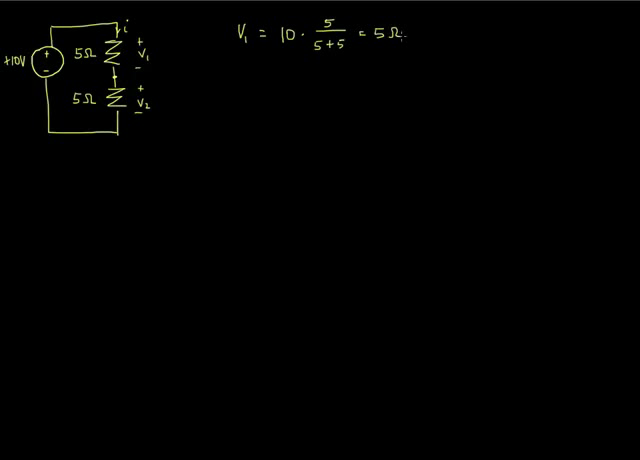 i
+
+10V
5Ω
V₁
+
-
-
+
5Ω
V₂
-
V₁ = 10 · 5/(5+5) = 5Ω